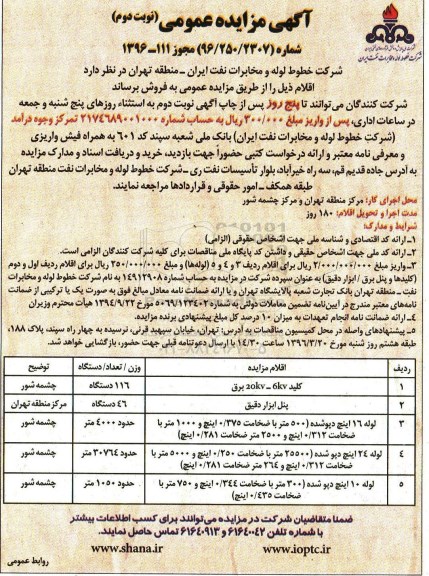 آگهی مزایده عمومی (نوبت دوم)
شماره (۹۶/۲۵۰/۲۳۰۷) مجوز ۱۱۱ـ۱۳۹۶
شرکت خطوط لوله و مخابرات نفت ایران ـ منطقه تهران در نظر دارد
اقلام ذیل را از طریق مزایده عمومی به فروش برساند
شرکت کنندگان می‌توانند تا پنج روز پس از چاپ آگهی نوبت دوم به استثناء روزهای پنج شنبه و جمعه
در ساعات اداری، پس از واریز مبلغ ۳۰۰/۰۰۰ ریال به حساب شماره ۲۱۷۴۶۸۹۰۰۱۰۰۰ تمرکز وجوه درآمد
(شرکت خطوط لوله و مخابرات نفت ایران) بانک ملی شعبه سپند کد ۶۰۱ به همراه فیش واریزی
و معرفی نامه معتبر و ارائه درخواست کتبی حضوراً جهت بازدید، خرید و دریافت اسناد و مدارک مزایده
به آدرس جاده قدیم قم، سه راه خیرآباد، بلوار تأسیسات نفت ری ـ شرکت خطوط لوله منطقه تهران
طبقه همکف ـ امور حقوقی و قراردادها مراجعه نمایند.
محل اجرای کار: مرکز منطقه تهران و مرکز چشمه شور
مدت اجرا و تحویل اقلام: ۱۸۰ روز
شرایط و مدارک:
۱ـ ارائه کد اقتصادی و شناسه ملی جهت اشخاص حقوقی (الزامی)
۲ـ ارائه کد ملی جهت اشخاص حقیقی و داشتن کد پایگاه ملی مناقصات برای کلیه شرکت کنندگان الزامی است.
۳ـ واریز مبلغ ۲/۰۰۰/۰۰۰/۰۰۰ ریال برای اقلام ردیف ۳ و ۴ و ۵ (لوله‌ها) و مبلغ ۲۵۰/۰۰۰/۰۰۰ ریال برای اقلام ردیف اول و دوم
(کلیدها و پنل برق / ابزار دقیق) به عنوان سپرده شرکت در مزایده به حساب شماره ۱۴۹۱۲۹۰۸ به نام شرکت خطوط لوله و مخابرات
نفت ـ منطقه تهران بانک تجارت شعبه پالایشگاه تهران و یا ارائه ضمانت نامه بانکی معادل مبالغ فوق به صورت یک یا ترکیبی از ضمانت
نامه‌های معتبر مندرج در آیین‌نامه تضمین معاملات دولتی به شماره ۱۲۳۴۰۲/ت۵۰۶۵۹ مورخ ۱۳۹۴/۹/۲۲ هیأت محترم وزیران
۴ـ ارائه ضمانت نامه انجام تعهدات به میزان ۱۰ درصد کل مبلغ پیشنهادی برنده مزایده
۵ـ پیشنهادهای واصله در محل کمیسیون مناقصات به آدرس: تهران، خیابان سپهبد قرنی، نرسیده به چهار راه سپند، پلاک ۱۸۸،
طبقه هشتم روز شنبه مورخ ۱۳۹۶/۳/۲۰ ساعت ۱۴/۳۰ با ارسال دعوتنامه قبلی جهت حضور، بازگشایی خواهد شد.
ردیف اقلام مزایده وزن / تعداد/ دستگاه توضیح
۱ کلید ۶kv ـ ۲۰kv برق ۱۱۶ دستگاه چشمه شور
۲ پنل ابزار دقیق ۴۶ دستگاه مرکز منطقه تهران
۳ لوله ۱۶ اینچ دپوشده (۵۰۰ متر با ضخامت ۰/۳۷۵ اینچ و ۱۰۰۰ متر با ضخامت ۰/۳۱۲ اینچ و ۲۵۰۰ متر ضخامت ۰/۲۸۱ اینچ) حدود ۴۰۰۰ متر چشمه شور
۴ لوله ۲۴ اینچ دپو شده (۲۵۵۰۰ متر با ضخامت ۰/۲۵۰ اینچ و ۵۰۰۰ متر با ضخامت ۰/۳۱۲ اینچ و ۲۶۴ متر ضخامت ۰/۲۸۱ اینچ) حدود ۳۰۷۶۴ متر چشمه شور
۵ لوله ۱۰ اینچ دپو شده (۳۰۰ متر با ضخامت ۰/۳۴۴ اینچ و ۷۵۰ متر با ضخامت ۰/۴۳۵ اینچ) حدود ۱۰۵۰ متر چشمه شور
ضمناً متقاضیان شرکت در مزایده می‌توانند برای کسب اطلاعات بیشتر
با شماره تلفن ۶۱۶۴۰۰۴۲ و ۶۱۶۴۰۹۱۳ تماس حاصل نمایند.
www.shana.ir www.ioptc.ir
روابط عمومی